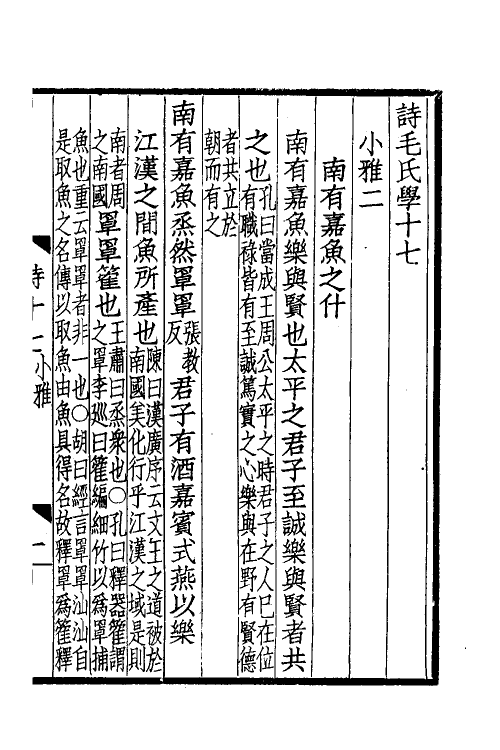 詩毛氏學十七
小雅二
南有嘉魚之什
南有嘉魚樂與賢也太平之君子至誠樂與賢者共
之也孔曰當成王周公太平之時君子之人已在位
有職祿皆有至誠篤實之心樂與在野有賢德
者共立於
朝而有之
南有嘉魚烝然罩罩張教
反君子有酒嘉賓式燕以樂
江漢之間魚所產也陳曰漢廣序云文王之道被於
南國美化行乎江漢之域是則
南者周
之南國罩罩籗也王肅曰烝衆也○孔曰釋器籗謂
之罩李巡曰籗編細竹以為罩捕
魚也重云罩罩者非一也○胡曰經言罩罩汕汕自
是取魚之名傳以取魚由魚具得名故釋罩為籗釋
詩十七小雅
一